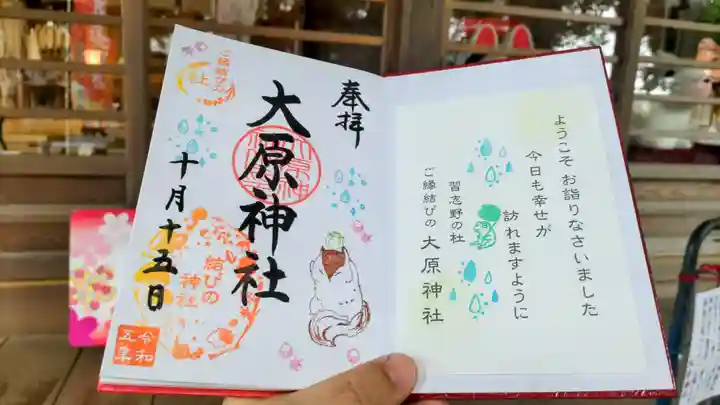 奉拝
大原神社
十月十五日
ご縁結びの
社
結びの
神社
令和
五年
ようこそ お詣りなさいました
今日も幸せが
訪れますように
習志野の杜
ご縁結びの 大原神社